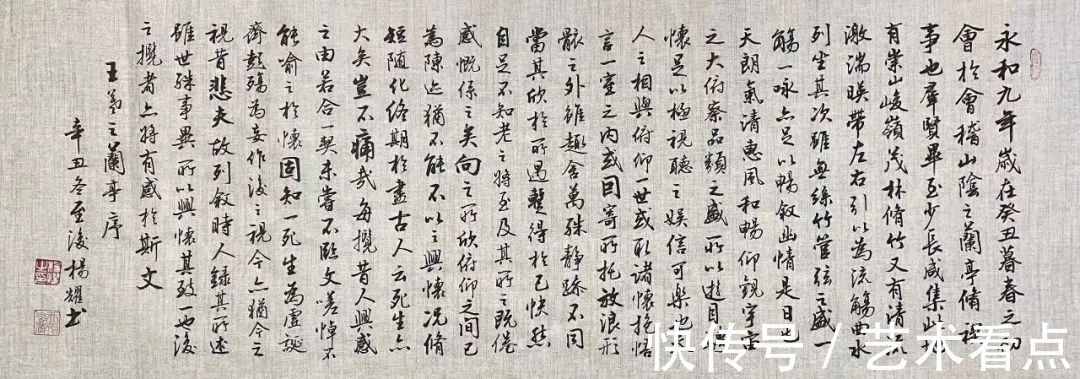 永和九年歲在癸丑暮春之初
會於會稽山陰之蘭亭脩稧
事也羣賢畢至少長咸集此地
有崇山峻嶺茂林脩竹又有清流
激湍暎帶左右引以為流觴曲水
列坐其次雖無絲竹管弦之盛一
觴一詠亦足以暢敘幽情是日也
天朗氣清惠風和暢仰觀宇宙
之大俯察品類之盛所以遊目騁
懷足以極視聽之娛信可樂也夫
人之相與俯仰一世或取諸懷抱悟
言一室之內或因寄所托放浪形
骸之外雖趣舍萬殊靜躁不同
當其欣於所遇蹔得於己快然
自足不知老之將至及其所之既倦
感慨係之矣向之所欣俯仰之間已
為陳迹猶不能不以之興懷況脩
短隨化終期於盡古人云死生亦
大矣豈不痛哉每攬昔人興感
之由若合一契未嘗不臨文嗟悼不
能喻之於懷固知一死生為虛誕
齊彭殤為妄作後之視今亦猶今之
視昔悲夫故列敘時人錄其所述
雖世殊事異所以興懷其致一也後
之攬者亦將有感於斯文
王羲之蘭亭序
辛丑冬至後楊耀书
快传号/艺术看点